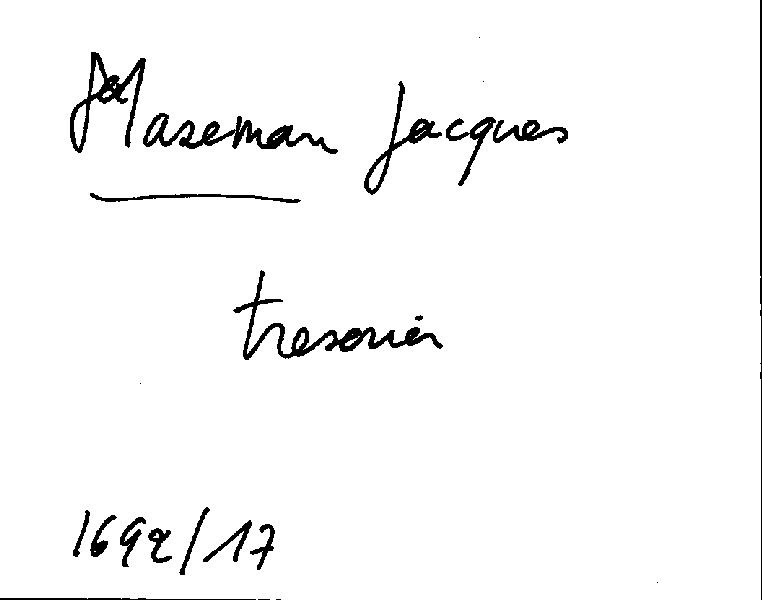 Maseman Jacques
tresorier
1692/17